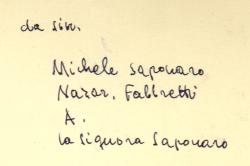 da sin.
Michele Saponaro
Nazar. Fabbretti
A.
la signora Saponaro